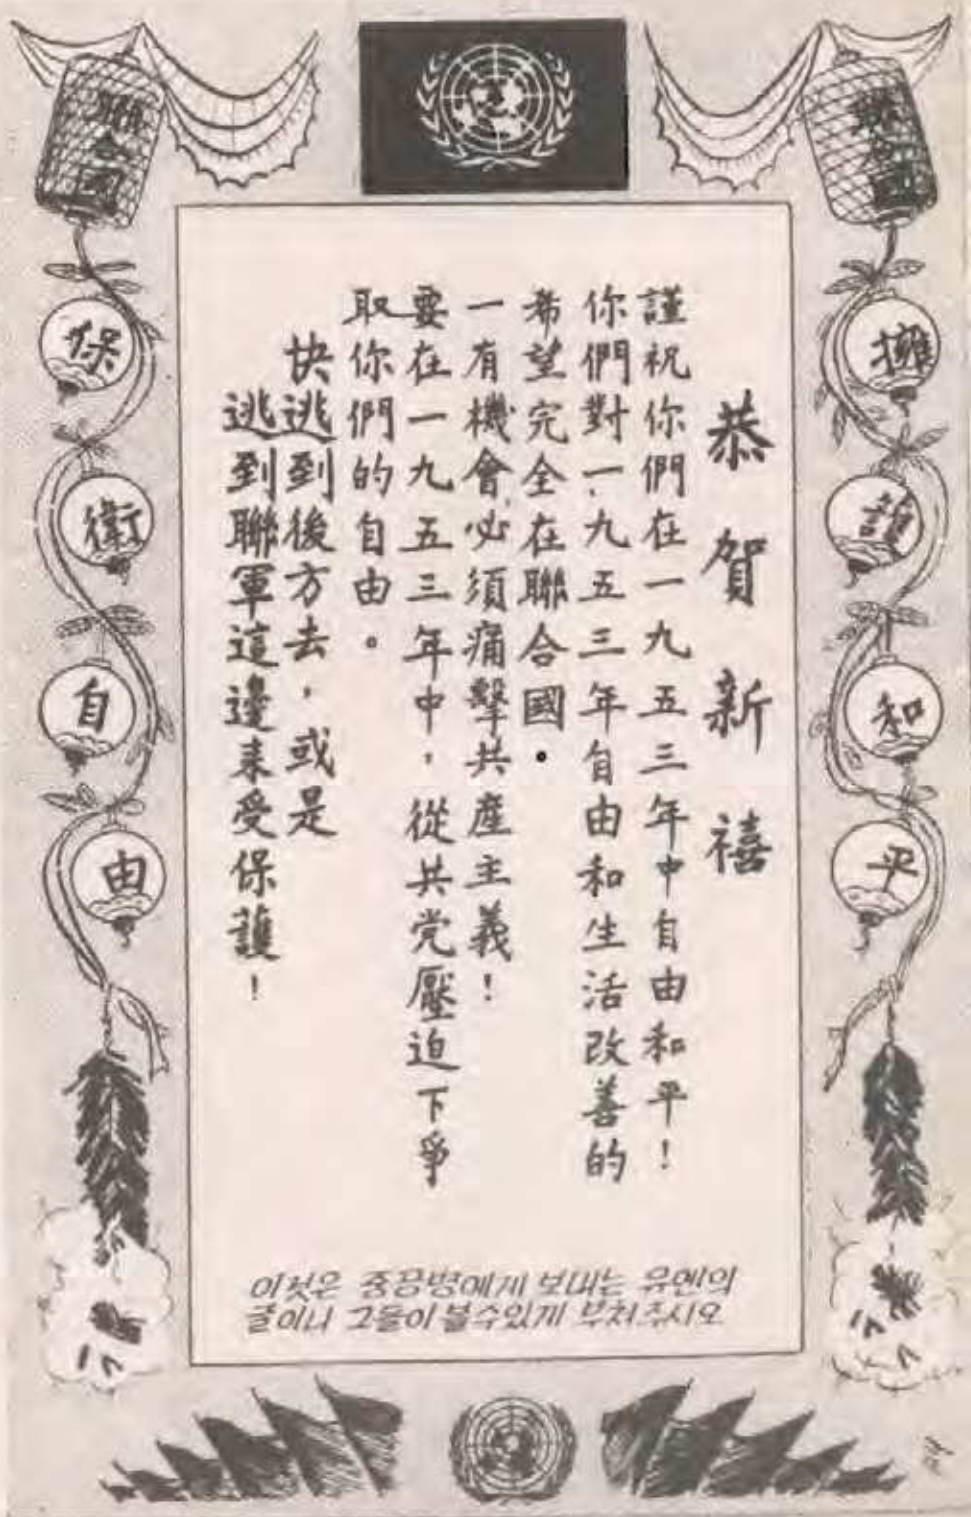 聯合國
擁護和平
恭賀新禧
謹祝你們在一九五三年中自由和平！
你們對一九五三年自由和生活改善的
希望完全在聯合國．
一有機會，必須痛擊共産主義！
要在一九五三年中，從共党壓迫下爭
取你們的自由。
快逃到後方去，或是
逃到聯軍這邊来受保護！
聯合國
保衛自由
이것은 중공병에게 보내는 유엔의
글이니 그들이 볼수있게 부처주시오